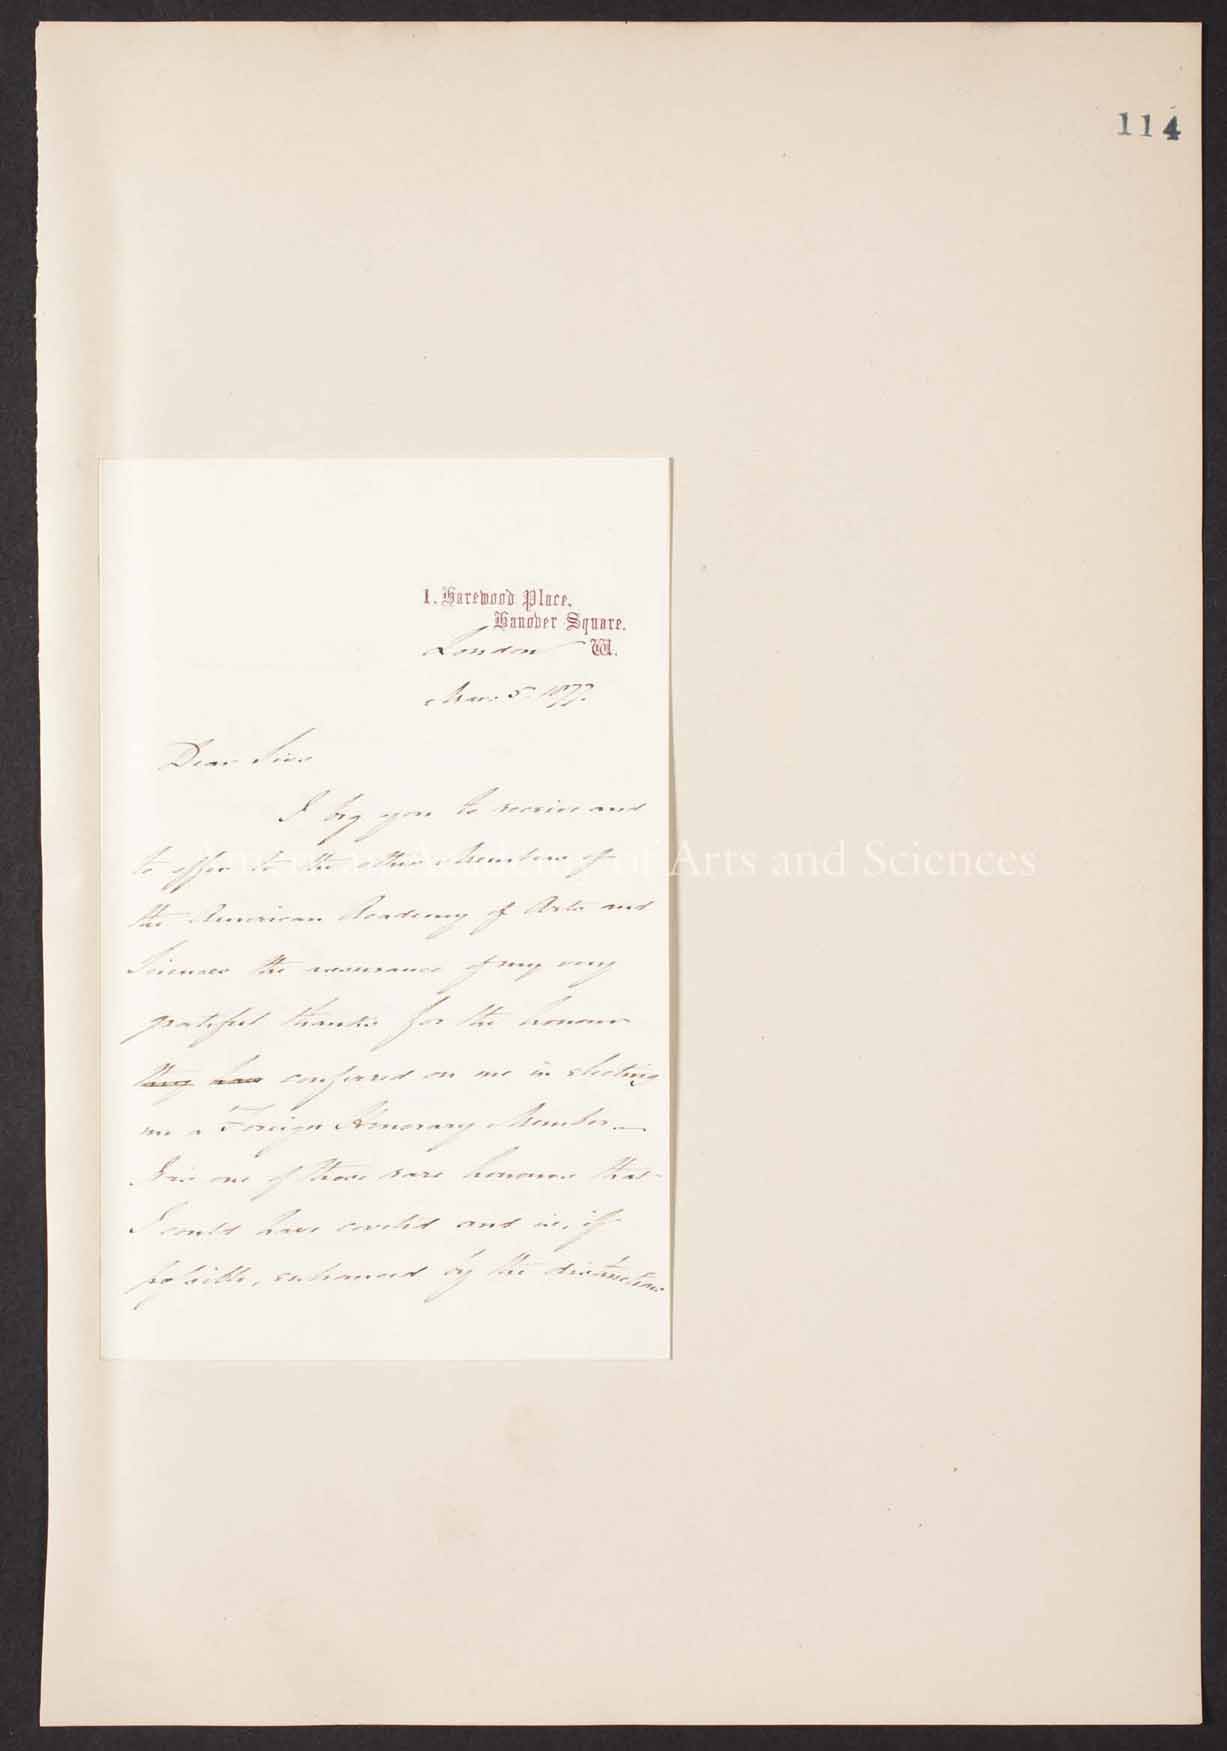 114
1. Harewood Place,
Hanover Square.
London W.
Mar. 5. 1877.
Dear Sirs
I beg you to receive and
to offer to the other Members of
the American Academy of Arts and
Sciences the assurance of my very
grateful thanks for the honour
they have conferred on me in electing
me a Foreign Honorary Member —
It is one of those rare honours that
I could have coveted and is, if
possible, enhanced by the distinction
American Academy of Arts and Sciences